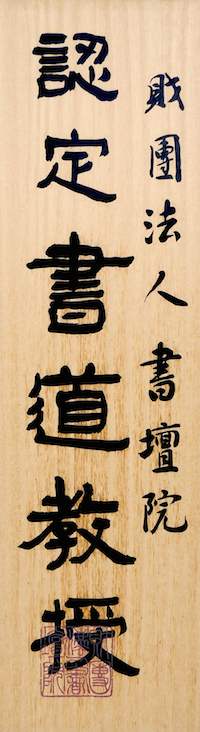 財團法人書壇院
認定書道教授